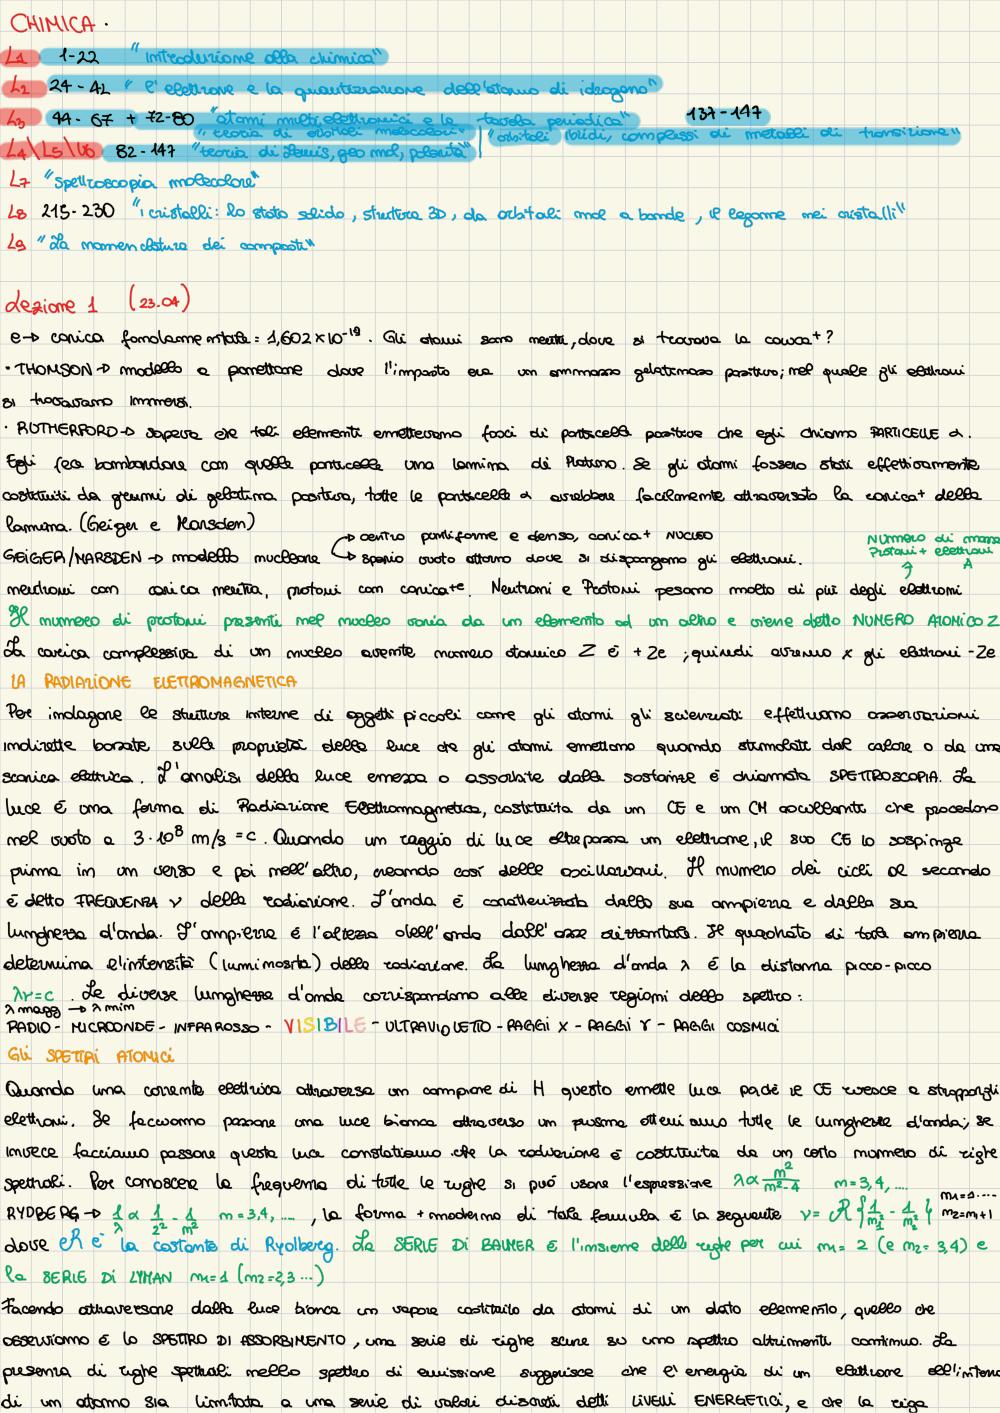 CHIMICA.
L1 1-22 "introduzione alla chimica"
L2 24-42 "l'elettrone e la quantizzazione dell'atomo di idrogeno"
L3 44-67 + 72-80 "atomi multielettronici e la tavola periodica" 137-147
"teoria di orbitali molecolari" | "orbitali solidi, complessi di metalli di transizione"
L4\L5\L6 82-147 "teoria di Lewis, geo mol, polarità"
L7 "Spettroscopia molecolare"
L8 215-230 "i cristalli: lo stato solido, struttura 3D, da orbitali mol a bande, il legame nei cristalli"
L9 "La nomenclatura dei composti"
Lezione 1 (23.04)
e→ carica fondamentale = 1,602×10⁻¹⁹. Gli atomi sono neutri, dove si trovava la carica⁺?
· THOMSON → modello a panettone dove l'impasto era un ammasso gelatinoso positivo; nel quale gli elettroni
si trovavano immersi.
· RUTHERFORD → sapeva che tali elementi emettevano fasci di particelle positive che egli chiamò PARTICELLE α.
Egli fece bombardare con quelle particelle una lamina di Platino. Se gli atomi fossero stati effettivamente
costituiti da grumi di gelatina positiva, tutte le particelle α avrebbero facilmente attraversato la carica⁺ della
lamina. (Geiger e Marsden)
→ centro puntiforme e denso, carica + NUCLEO
GEIGER/MARSDEN → modello nucleare → spazio vuoto attorno dove si dispongono gli elettroni.
Numero di massa
Protoni + elettroni
A
neutroni con carica neutra, protoni con carica⁺ᵉ. Neutroni e Protoni pesano molto di più degli elettroni
Il numero di protoni presenti nel nucleo varia da un elemento ad un altro e viene detto NUMERO ATOMICO Z
La carica complessiva di un nucleo avente numero atomico Z è +Ze ; quindi avremo x gli elettroni -Ze
LA RADIAZIONE ELETTROMAGNETICA
Per indagare le strutture interne di oggetti piccoli come gli atomi gli scienziati effettuano osservazioni
indirette basate sulla proprietà della luce che gli atomi emettono quando stimolati dal calore o da una
scarica elettrica. L'analisi della luce emessa o assorbita dalla sostanze è chiamata SPETTROSCOPIA. La
luce è una forma di Radiazione Elettromagnetica, costituita da un CE e un CM oscillanti che procedono
nel vuoto a 3·10⁸ m/s = c. Quando un raggio di luce oltrepassa un elettrone, il suo CE lo sospinge
prima in un verso e poi nell'altro, creando così delle oscillazioni. Il numero dei cicli al secondo
è detto FREQUENZA ν della radiazione. L'onda è caratterizzata dalla sua ampiezza e dalla sua
lunghezza d'onda. L'ampiezza è l'altezza dell'onda dall'asse orizzontale. Il quadrato di tale ampiezza
determina l'intensità (luminosità) della radiazione. La lunghezza d'onda λ è la distanza picco-picco
λν=c . Le diverse lunghezze d'onda corrispondono alle diverse regioni dello spettro:
λ magg → λ min
RADIO - MICROONDE - INFRAROSSO - VISIBILE - ULTRAVIOLETTO - RAGGI X - RAGGI γ - RAGGI COSMICI
GLI SPETTRI ATOMICI
Quando una corrente elettrica attraversa un campione di H questo emette luce perchè il CE riesce a strappargli
elettroni. Se facciamo passare una luce bianca attraverso un prisma otteniamo tutte le lunghezze d'onda; se
invece facciamo passare questa luce constatiamo che la radiazione è costituita da un certo numero di righe
spettrali. Per conoscere la frequenza di tutte le righe si può usare l'espressione λ ∝ n²/n²-4 n=3,4,....
RYDBERG → 1/λ ∝ 1/2² - 1/n² n=3,4,.... , la forma + moderna di tale formula è la seguente ν= R{1/n₁² - 1/n₂²} n₁=1.... n₂=n₁+1
dove R è la costante di Rydberg. La SERIE DI BALMER è l'insieme delle righe per cui n₁= 2 (e n₂= 3,4) e
la SERIE DI LYMAN n₁=1 (n₂=2,3...)
Facendo attraversare dalla luce bianca un vapore costituito da atomi di un dato elemento, quello che
osserviamo è lo SPETTRO DI ASSORBIMENTO, una serie di righe scure su uno spettro altrimenti continuo. La
presenza di righe spettrali nello spettro di emissione suggerisce che l'energia di un elettrone all'interno
di un atomo sia limitata a una serie di valori discreti detti LIVELLI ENERGETICI, e che la riga